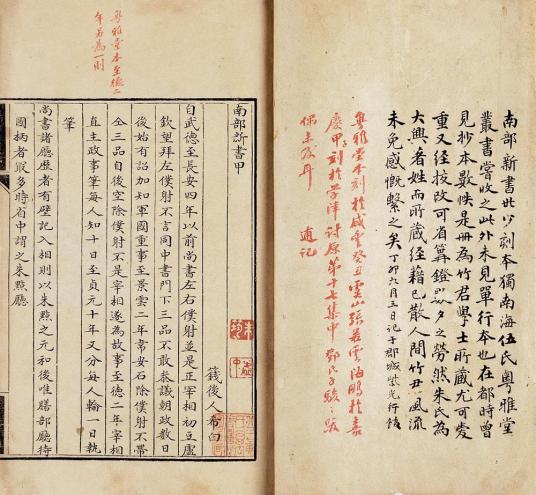 南部新書世少刻本獨南海伍氏粵雅堂
叢書嘗收之此外未見單行本也在都時曾
見抄本數帙是冊為竹君學士所藏尤可愛
重又經校改可省篝鐙之勞然朱氏為
大興著姓而所藏經籍已散人間竹君風流
未免感慨繫之矣丁卯六月三日記于郡城
粵雅堂本刻於咸豐癸丑張若雲海鵬於嘉
慶刻於學津討原第十七集中
偶未及耳
粵雅堂本至德二
年另為一則
南部新書甲
籛後人希白
自武德至長安四年以前尚書左右僕射並是正宰相初豆盧
欽望拜左僕射不言同中書門下三品不敢參議朝政數日
後始有詔加知軍國重事至景雲二年韋安石除僕射不帶
仝三品自後空除僕射不是宰相遂為故事至德二年宰相
直主政事筆每人知十日至貞元十年又分每人輪一日執
筆
尚書諸廳歷者有壁記入相則以朱點之元和後惟膳部廳持
國柄者最多時省中謂之朱點廳